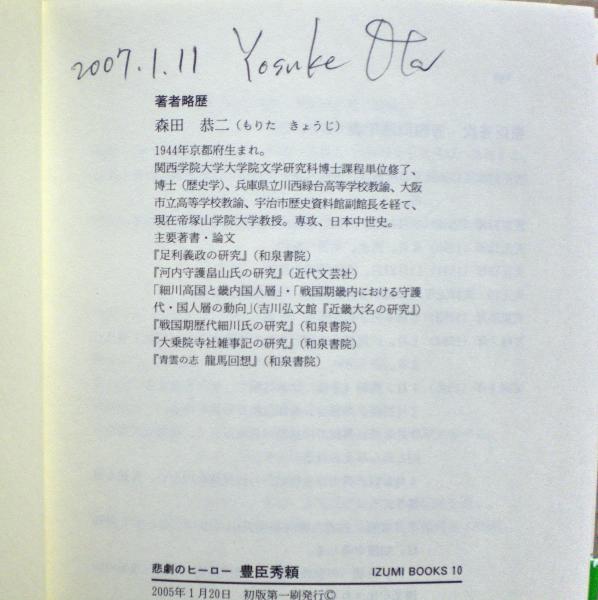 2007.1.11 Yosuke Ota
著者略歴
森田 恭二（もりた きょうじ）
1944年京都府生まれ。
関西学院大学大学院文学研究科博士課程単位修了、
博士（歴史学）、兵庫県立川西緑台高等学校教諭、大阪
市立高等学校教諭、宇治市歴史資料館副館長を経て、
現在帝塚山学院大学教授。専攻、日本中世史。
主要著書・論文
『足利義政の研究』（和泉書院）
『河内守護畠山氏の研究』（近代文芸社）
「細川高国と畿内国人層」・「戦国期畿内における守護
代・国人層の動向」（吉川弘文館『近畿大名の研究』）
『戦国期歴代細川氏の研究』（和泉書院）
『大乗院寺社雑事記の研究』（和泉書院）
『青雲の志 龍馬回想』（和泉書院）
悲劇のヒーロー 豊臣秀頼 IZUMI BOOKS 10
2005年1月20日 初版第一刷発行©